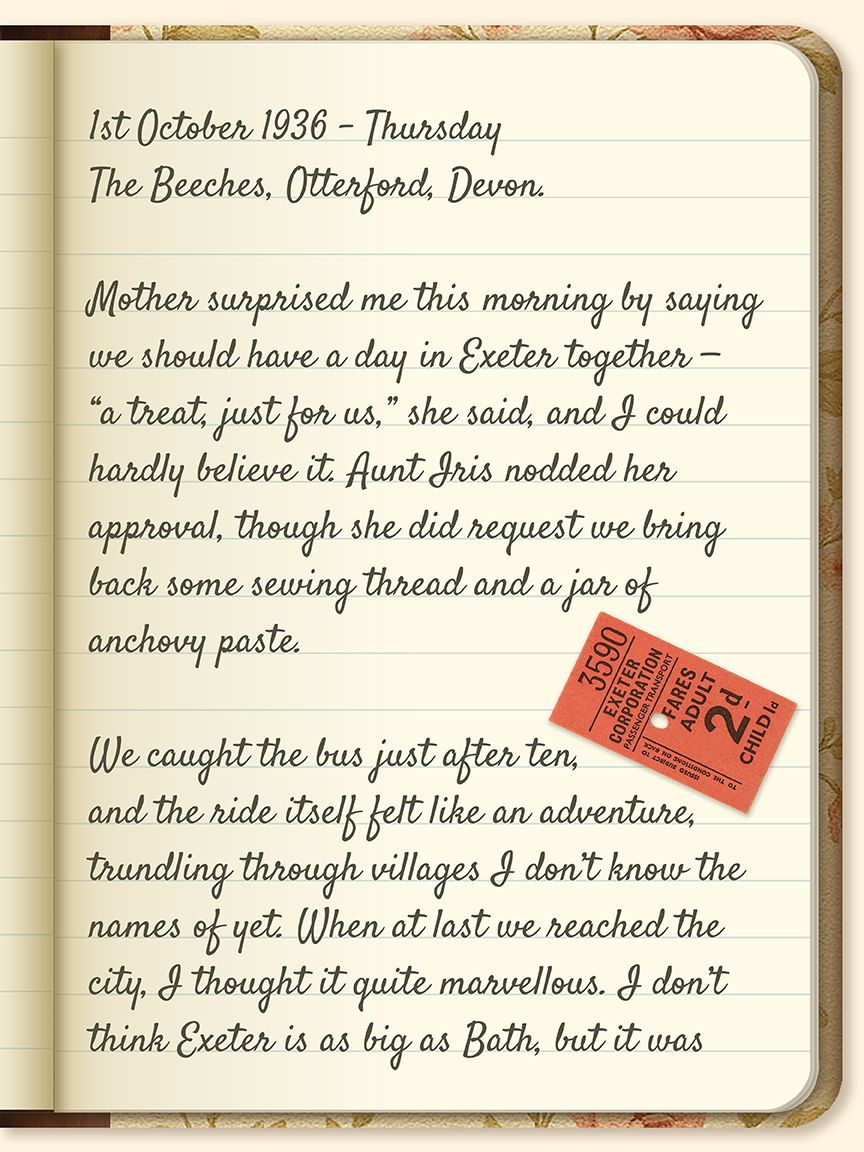 1st October 1936 – Thursday
The Beeches, Otterford, Devon.
Mother surprised me this morning by saying
we should have a day in Exeter together –
“a treat, just for us,” she said, and I could
hardly believe it. Aunt Iris nodded her
approval, though she did request we bring
back some sewing thread and a jar of
anchovy paste.
3590
EXETER
CORPORATION
PASSENGER TRANSPORT
FARES
ADULT
2d
CHILD 1d
ISSUED SUBJECT TO
THE CONDITIONS ON BACK
TO
We caught the bus just after ten,
and the ride itself felt like an adventure,
trundling through villages I don’t know the
names of yet. When at last we reached the
city, I thought it quite marvellous. I don’t
think Exeter is as big as Bath, but it was